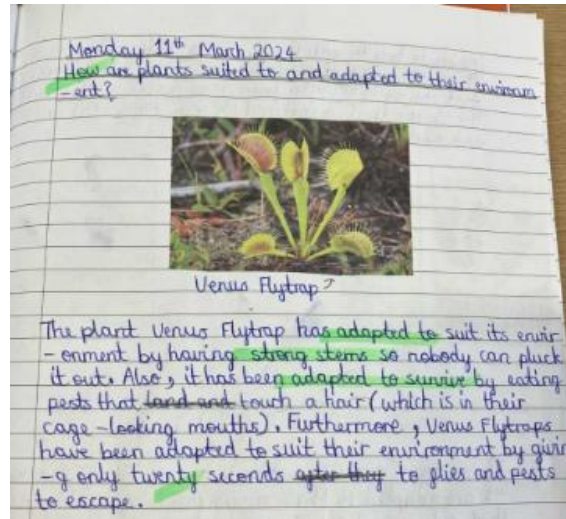 Monday 11th March 2024
How are plants suited to and adapted to their environm
-ent?
Venus Flytrap
The plant Venus Flytrap has adapted to suit its envir
-onment by having strong stems so nobody can pluck
it out. Also, it has been adapted to survive by eating
pests that land and touch a hair (which is in their
cage-looking mouths). Furthermore, Venus Flytraps
have been adapted to suit their environment by givin
-g only twenty seconds after they to flies and pests
to escape.